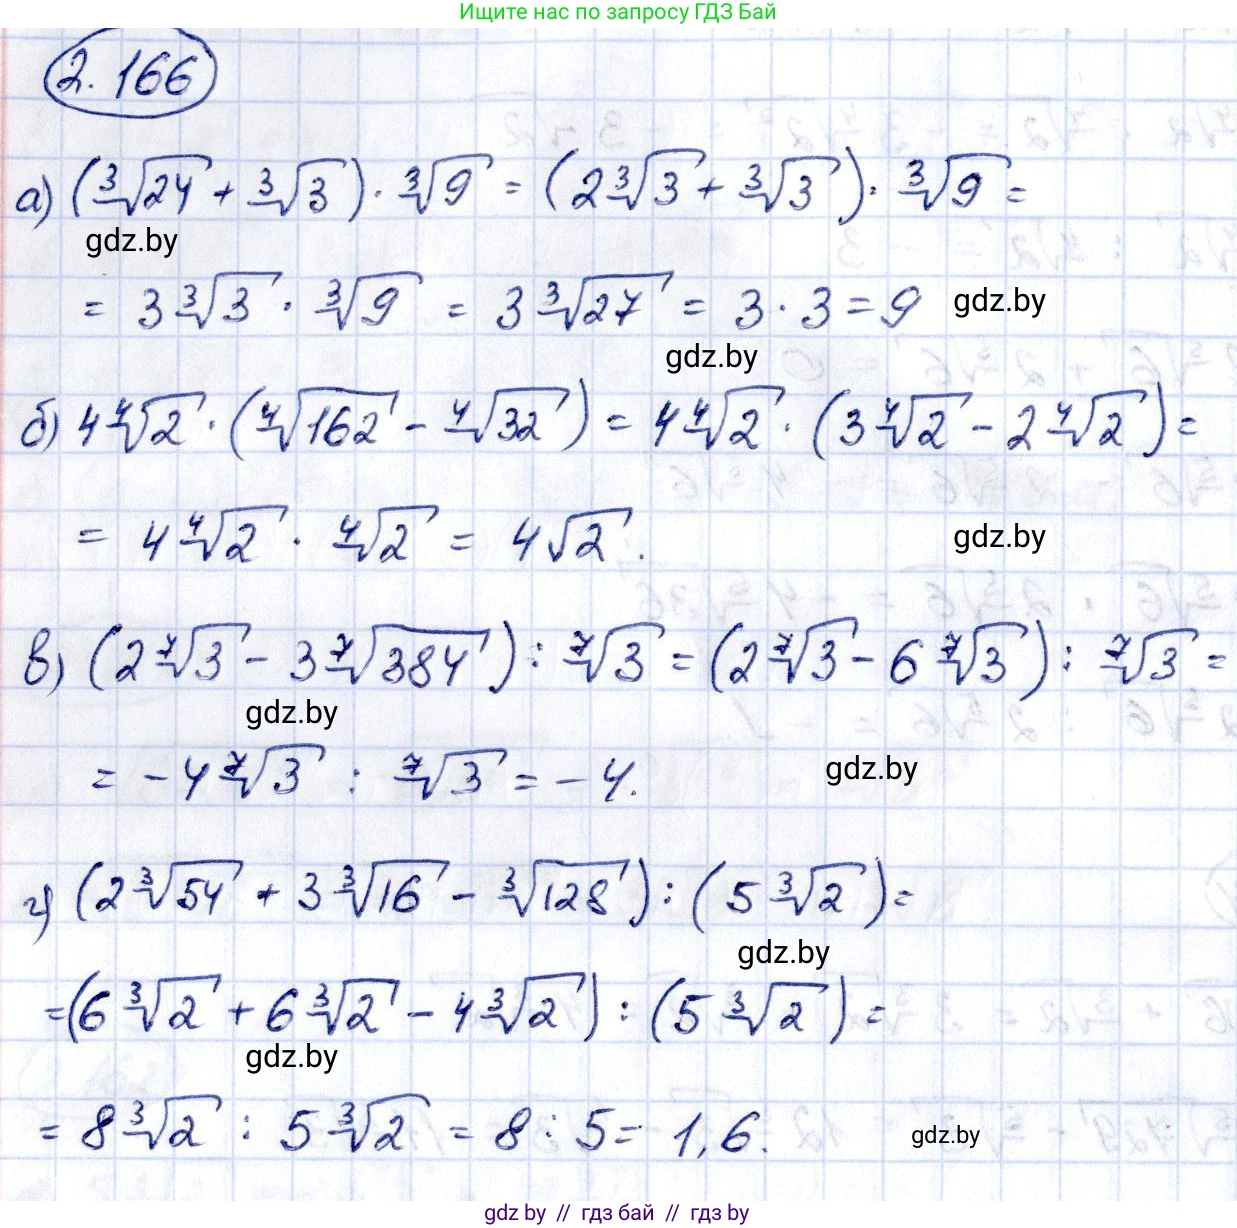 Ищите нас по запросу ГДЗ Бай
2.166
а) (∛24 + ∛3) · ∛9 = (2∛3 + ∛3) · ∛9 =
gdz.by
= 3∛3 · ∛9 = 3∛27 = 3 · 3 = 9 gdz.by
gdz.by
б) 4∜2 · (∜162 - ∜32) = 4∜2 · (3∜2 - 2∜2) =
= 4∜2 · ∜2 = 4√2. gdz.by
в) (2⁷√3 - 3⁷√384) : ⁷√3 = (2⁷√3 - 6⁷√3) : ⁷√3 =
gdz.by
= -4⁷√3 : ⁷√3 = -4. gdz.by
г) (2∛54 + 3∛16 - ∛128) : (5∛2) =
gdz.by
=(6∛2 + 6∛2 - 4∛2) : (5∛2) =
gdz.by
= 8∛2 : 5∛2 = 8 : 5 = 1,6. gdz.by
gdz by // гдз бай // gdz by